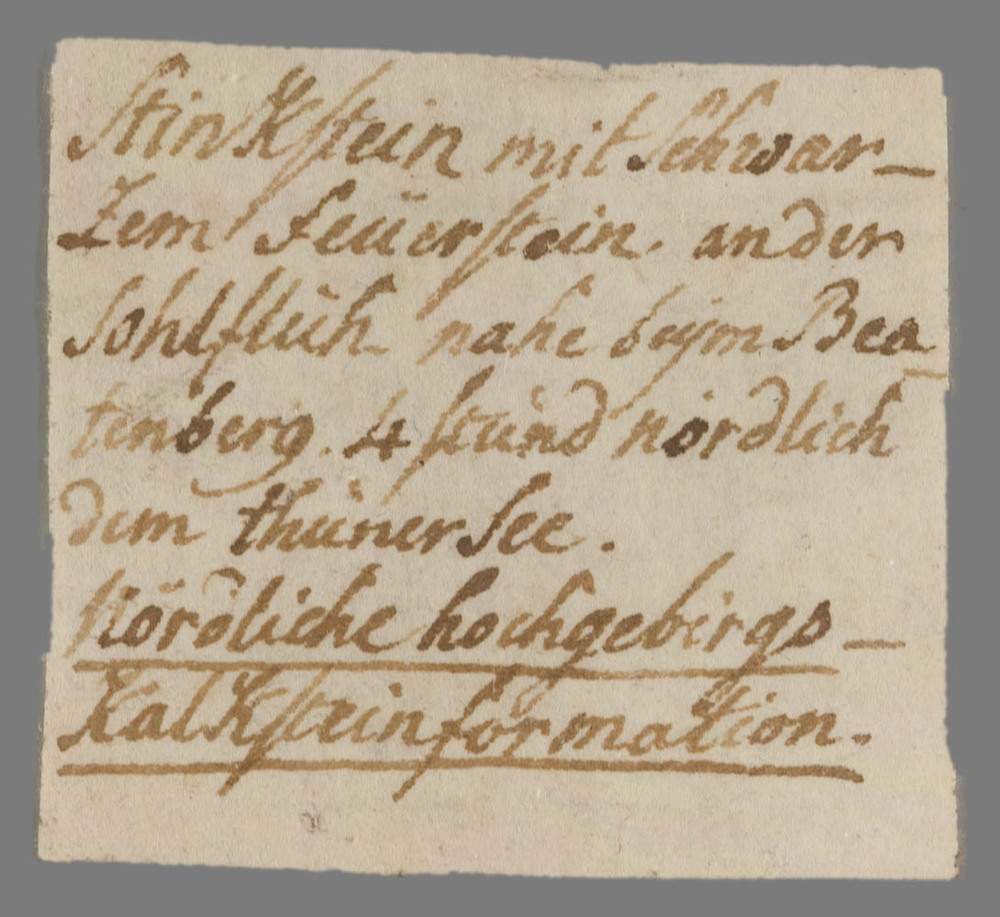 StinKstein mit schwar-
zem feüerstein. an der
sohlflüh. nahe beym Bea
tenberg. 4 stünd nördlich
dem thüner see.
Nördliche hochgebirgs-
KalKsteinformation.